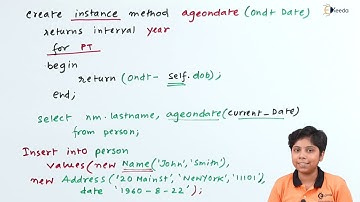 create instance method ageondate (ondt Date)
returns interval year
for PT
begin
return (ondt - self.dob);
end;
select nm.lastname, ageondate(current_Date)
from person;
Insert into person
values (new Name('John', 'Smith'),
new Address('20 Mainst', 'NewYork', '11101'),
date '1960-8-22');